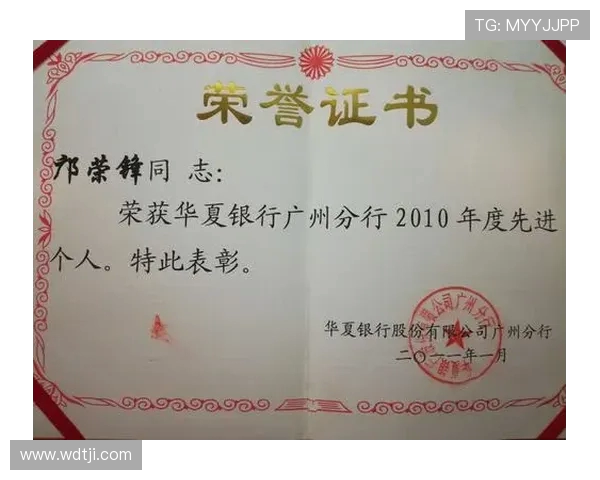 TG: MYYJJPP
荣誉证书
邝荣锋同 志:
荣获华夏银行广州分行2010年度先进
个人。特此表彰。
华夏银行股份有限公司广州分行
二〇一一年一月
www.wdtji.com